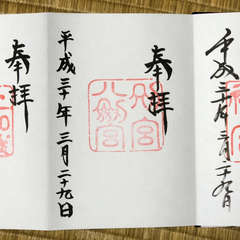 平成三十年三月二十九日
奉拝
別宮
八剱宮
平成三十年三月二十九日
奉拝